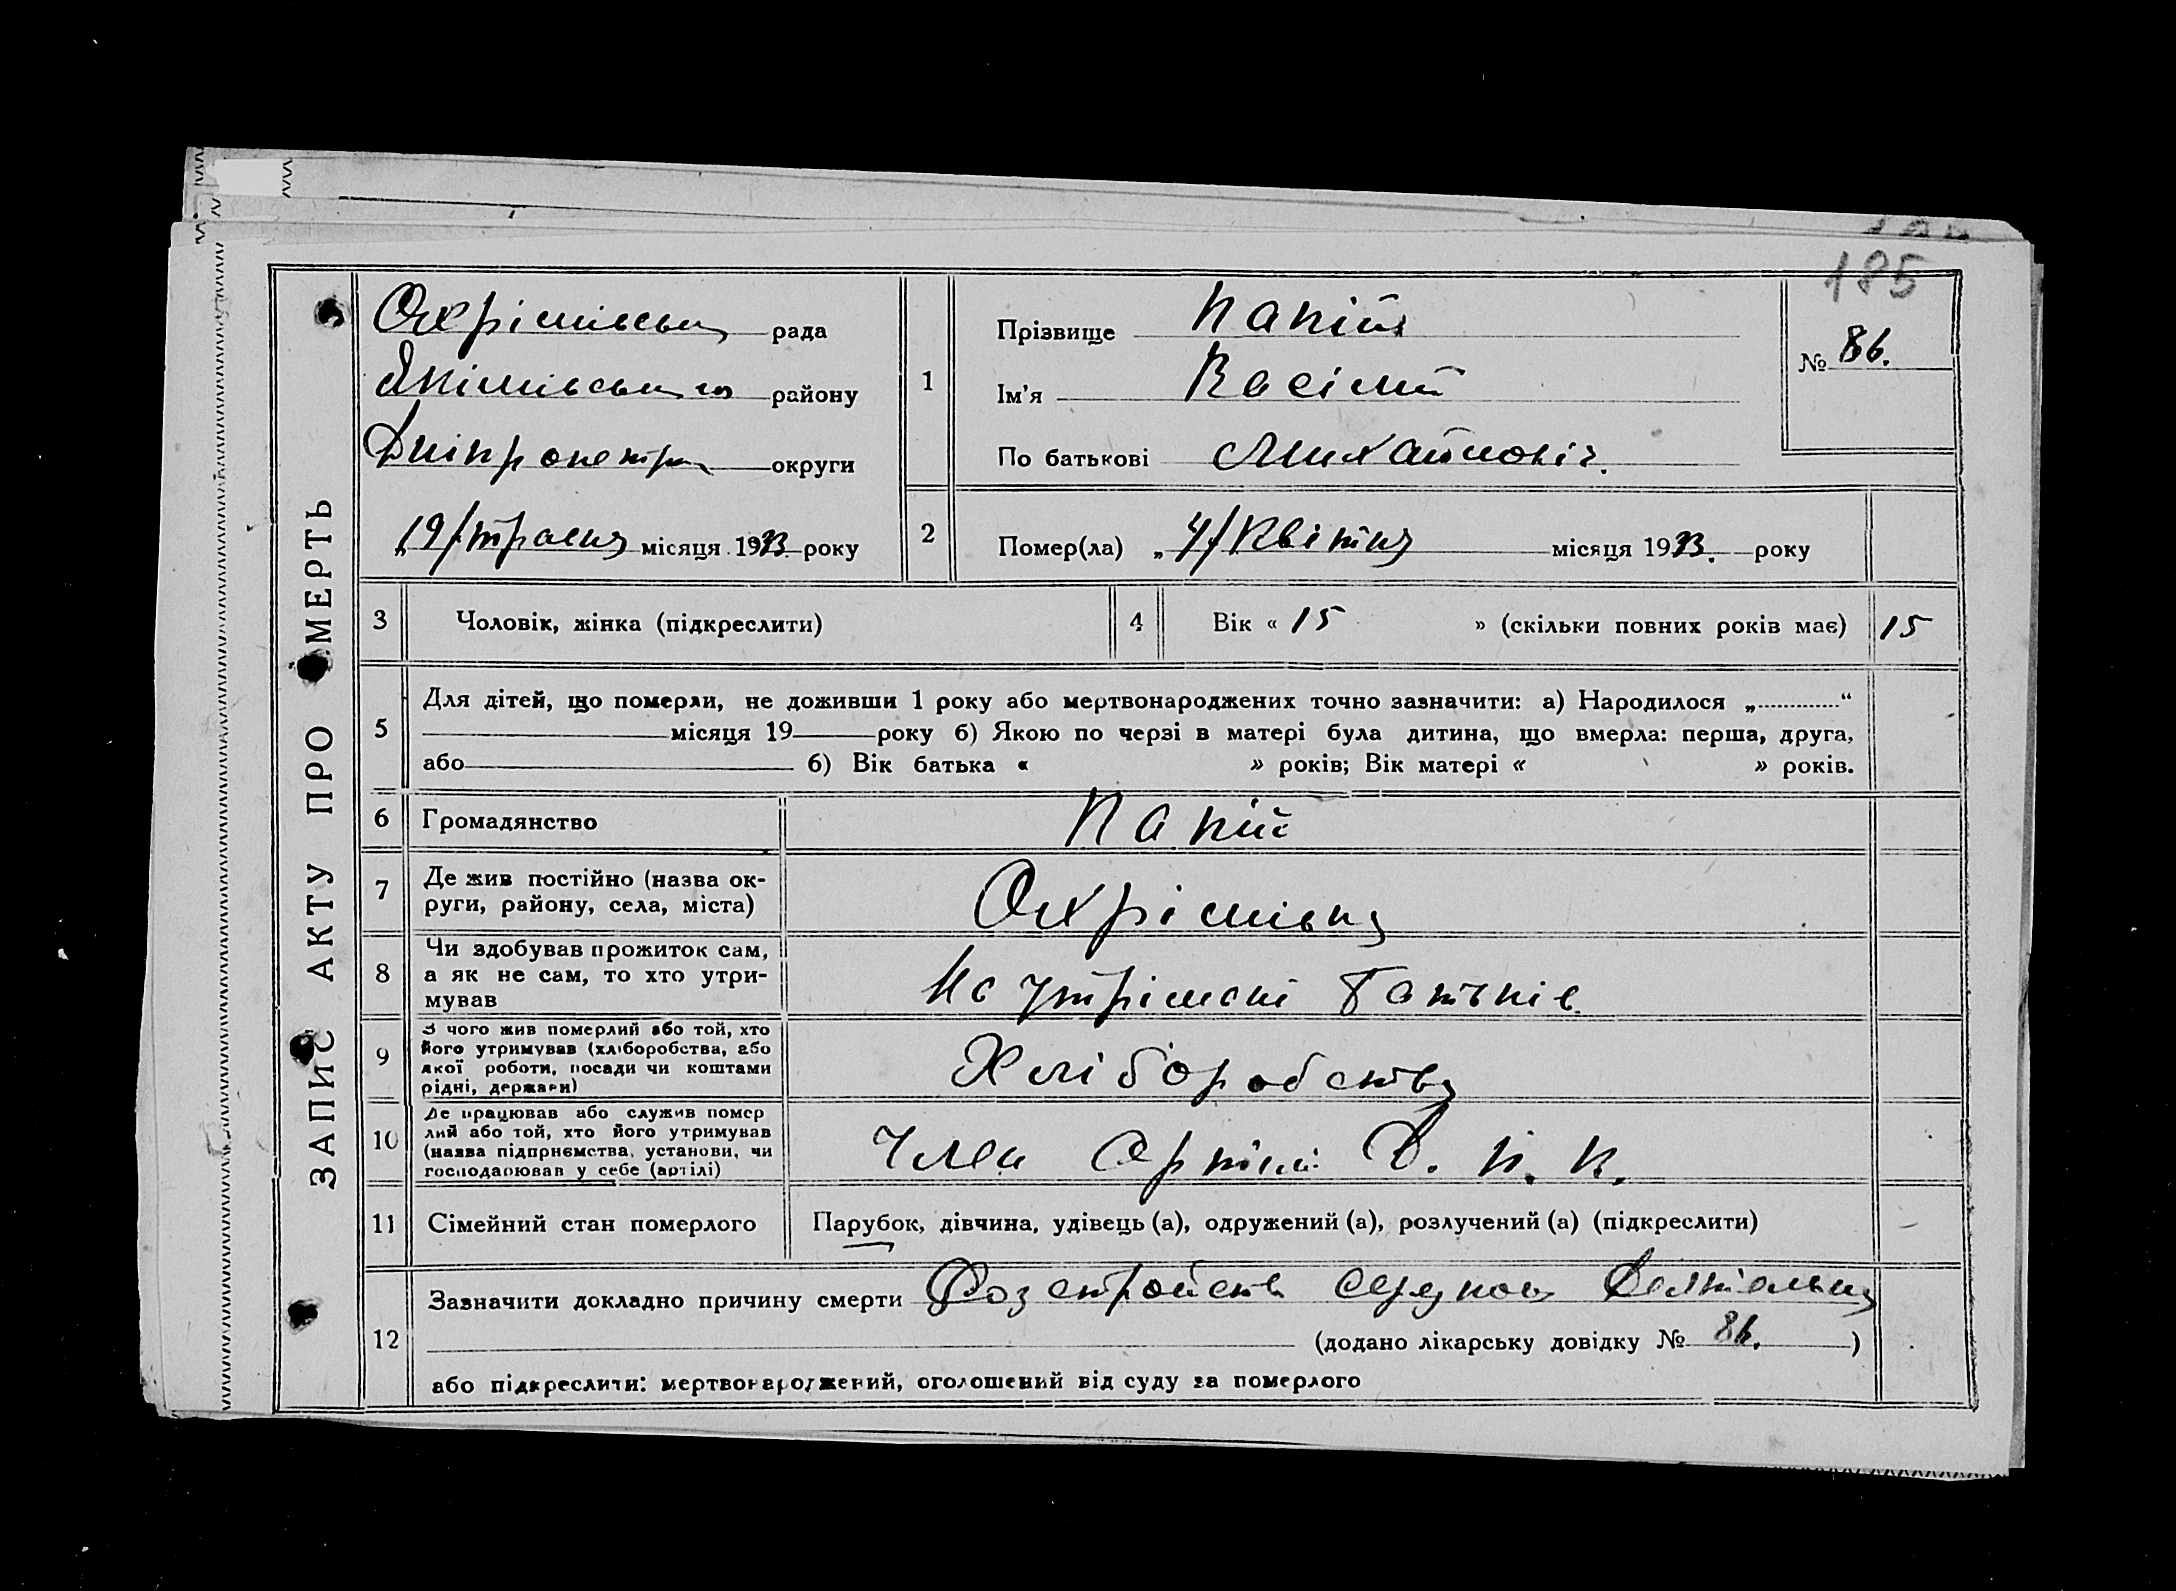 185
ЗАПИС АКТУ ПРО СМЕРТЬ
Охрімівська рада
Якімівського району
Дніпропетр округи
„19/травня місяця 1933 року
1
Прізвище Папій
Ім'я Васілій
По батькові Михайловіч.
№ 86.
2
Помер(ла) „4/Квітня місяця 1933. року
3 Чоловік, жінка (підкреслити)
4 Вік « 15 » (скільки повних років має) 15
5
Для дітей, що померли, не доживши 1 року або мертвонароджених точно зазначити: а) Народилося „ “
місяця 19 року б) Якою по черзі в матері була дитина, що вмерла: перша, друга,
або б) Вік батька « » років; Вік матері « » років.
6 Громадянство Папій
7 Де жив постійно (назва ок-
руги, району, села, міста) Охрімівка
8 Чи здобував прожиток сам,
а як не сам, то хто утри-
мував На утрімані батьків
9 З чого жив померлий або той, хто
його утримував (хліборобства, або
якої роботи, посади чи коштами
рідні, держави) Хліборобство
10 Де працював або служив помер
лий або той, хто його утримував
(назва підприємства, установи, чи
господарював у себе (артілі) Член Артілі Д. П. К.
11 Сімейний стан померлого Парубок, дівчина, удівець (а), одружений (а), розлучений (а) (підкреслити)
12 Зазначити докладно причину смерти Розстройств
(додано лікарську довідку № 86. )
або підкреслити: мертвонароджений, оголошений від суду за померлого